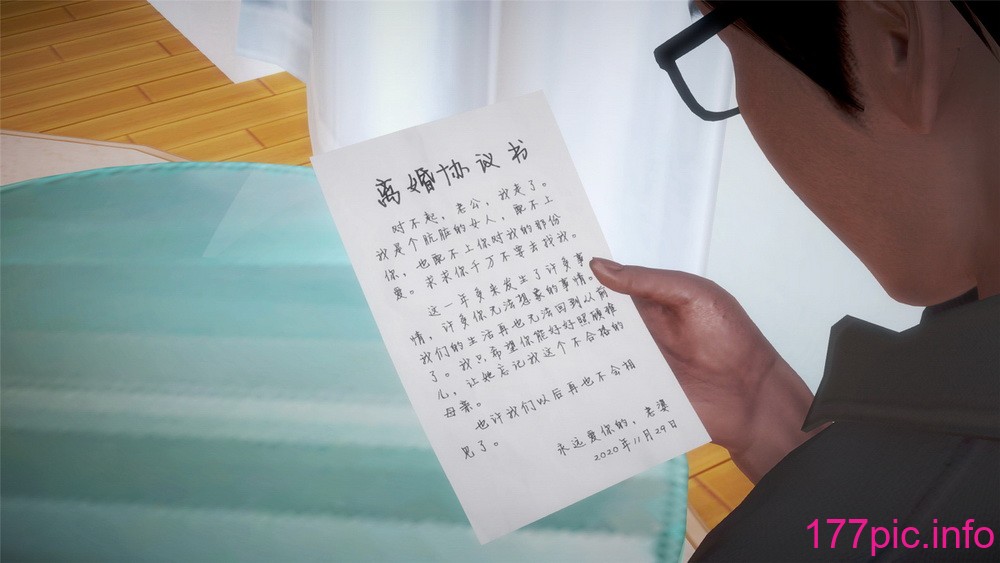 离婚协议书
对不起，老公，我走了。
我是个肮脏的女人，配不上
你，也配不上你对我的那份
爱。求求你千万不要去找我。
这一年多来发生了许多事
情，许多你无法想象的事情。
我们的生活再也无法回到从前
了。我只希望你能好好照顾雅
儿，让她忘记我这个不合格的
母亲。
也许我们以后再也不会相
见了。
永远爱你的，老婆
2020年11月29日
177pic.info